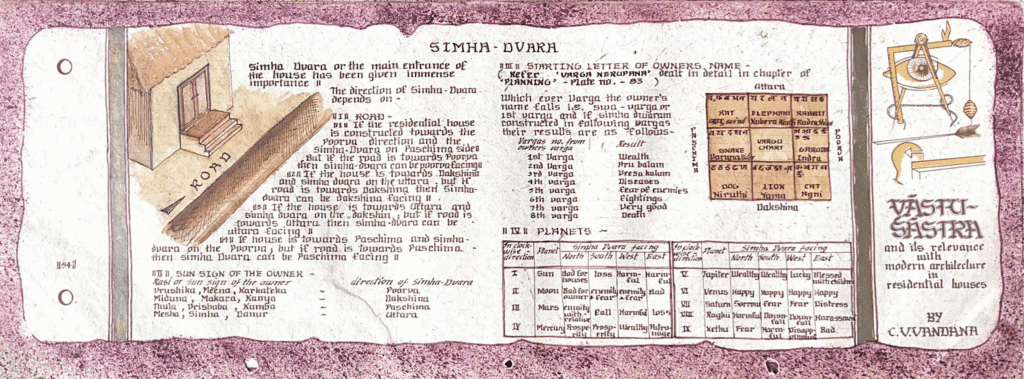 SIMHA-DVARA
Simha Dvara or the main entrance of
the house has been given immense
importance ॥
The direction of Simha-Dvara
depends on -
ROAD -
If the residential house
is constructed towards the
Poorva direction and the
Simha-Dvara on Paschima side
But if the road is towards Poorva
then simha-dvara can be poorva facing
If the house is towards Dakshina
and simha dvara on the uttara, but if
road is towards Dakshina then Simha-
dvara can be dakshina facing ॥
If the house is towards Uttara and
simha dvara on the Dakshin, but if road is
towards Uttara then simha-dvara can be
uttara facing ॥
If house is towards Paschima and simha-
dvara on the Poorva, but if road is towards Paschima -
then simha Dvara can be Paschima facing ॥
ROAD
SUN SIGN OF THE OWNER -
Rasi or Sun sign of the owner direction of Simha-Dvara
Vrushika, Meena, Karkateka - Poorva
Miduna, Makara, Kanya - Dakshina
Thula, Vrishaba, Kumba - Paschima
Mesha, Simha, Danur - Uttara
॥54॥
॥III॥ STARTING LETTER OF OWNERS NAME -
( Refer 'VARGA NARUPANA' dealt in detail in chapter of
'PLANNING' - Plate no. - 83 )
Which ever Varga the owner's
name falls i.e. swa-varga or
1st varga and if simha dwaram
constructed in following vargas
their results are as follows-
Vargas no. from Result
owners varga
1st Varga Wealth
2nd varga Pra balam
3rd varga Veesa kalam
4th varga Diseases
5th varga fear of enemies
6th varga Fightings
7th varga Very good
8th varga Death
Uttara
PASCHIMA
POORVA
RAT ELEPHANT RABBIT
SNAKE VARGU CHART GARUDA
Indra
DOG LION CAT
Niruthi Yama Agni
Dakshina
॥IV॥ PLANETS -
In clock-wise direction Planet Simha Dvara facing
North South West East
I Sun Bad for houses loss Harmful Harmful
II Moon Bad for owner enemity fear enemity fear Bad
III Mars enemity with relative fall Harmful loss
IV Mercury Prosperity Prosperity Wealthy Patronage
In clock-wise direction Planet Simha Dvara facing
North South West East
V Jupiter Wealthy Wealthy lucky Blessed with children
VI Venus Happy Happy Happy Happy
VII Saturn Sorrow Fear Fear Distress
VIII Raghu Harmful Downfall Downfall Harassment
IX Kethu Fear Harmful Disappointing Bad
VĀSTU-
SĀSTRA
and its relevance
with
modern architecture
in
residential houses
BY
C.V.VANDANA